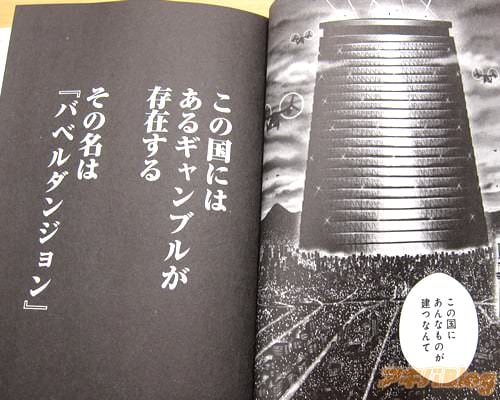 この国に
あんなものが
建つなんて
この国には
あるギャンブルが
存在する
その名は
『バベルダンジョン』
アキバBlog